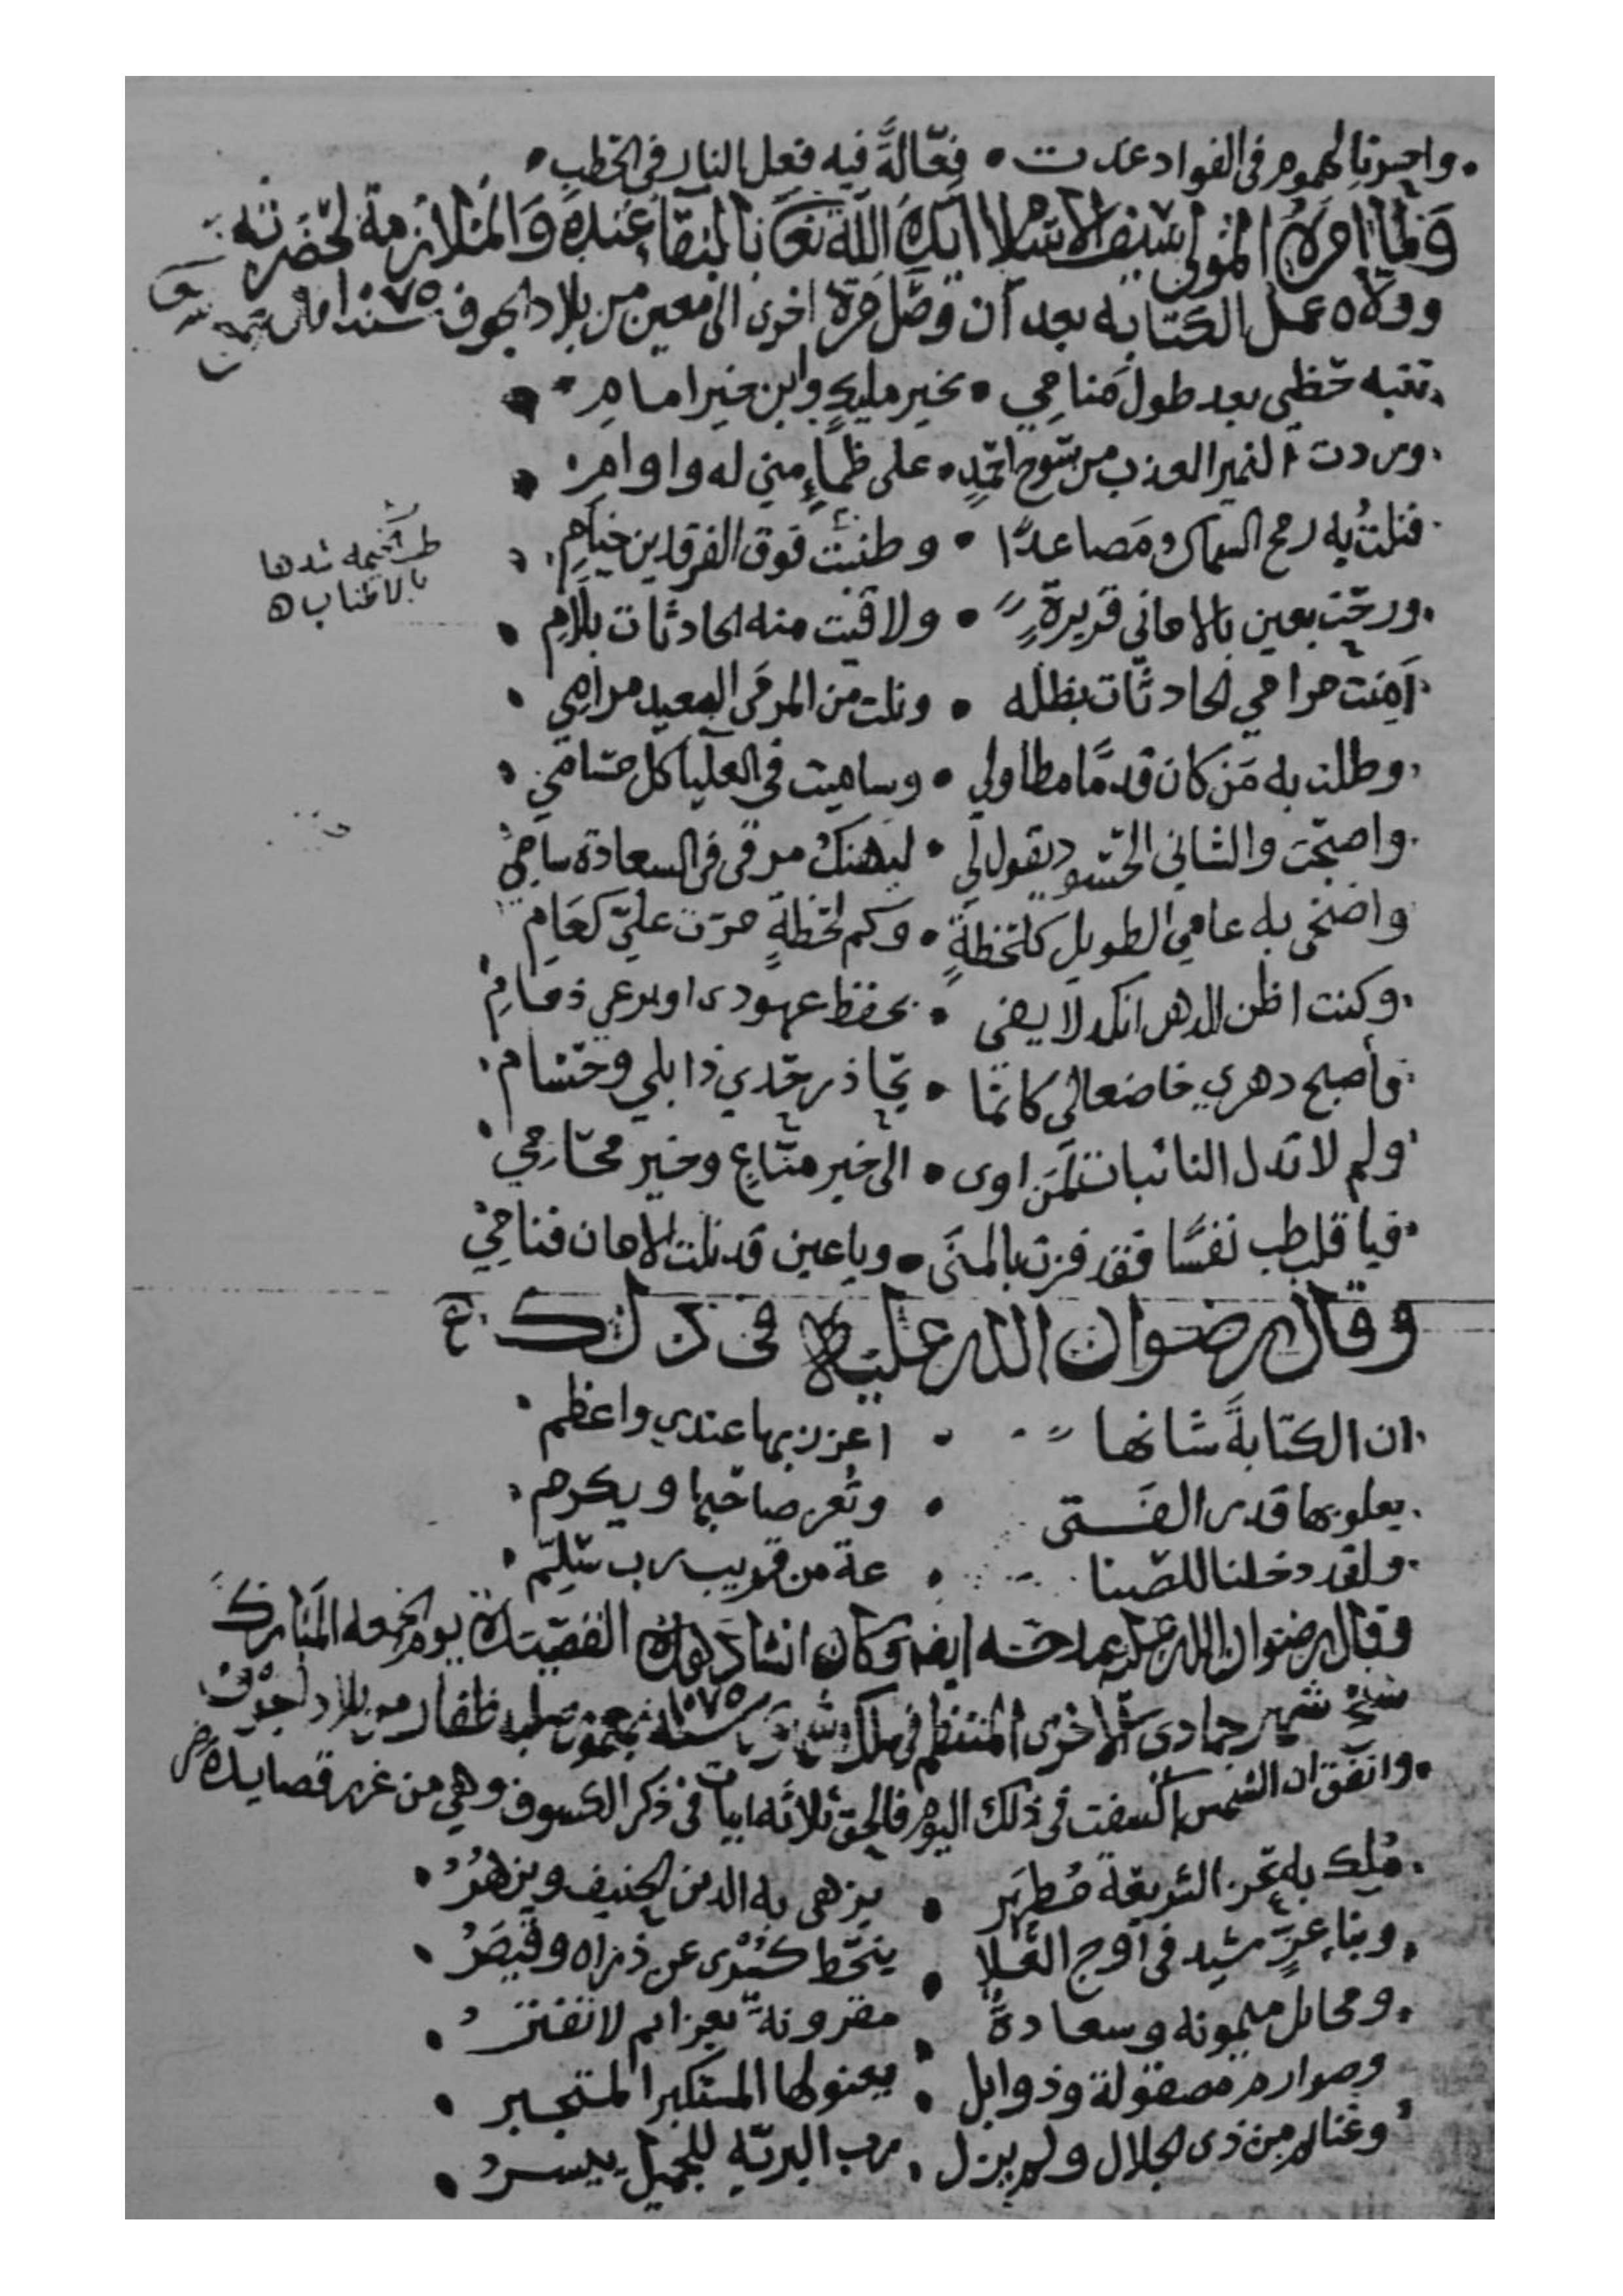 واحسرتا لهموم فى الفواد غدت • فعّالةً فيه فعل النار فى الحطب •
ولما امره المولى سيف الاسلام ايده الله تعالى بالبقاء عنده والملازمة لحضرته
وولاه عمل الكتابه بعد ان وصل مرة اخرى الى معين من بلاد الجوف سنة ٧٥
تنبه حظي بعد طول منامي • بخير مليكٍ وابن خير امام
وردت النمير العذب من سوح احمدٍ • على ظماءٍ مني له واوام
فنلت به رمح السماك ومصاعدًا • وطنبت فوق الفرقدين خيامي
طنب الخيمه شدها
بالاطناب ه
ورحت بعين بالاماني قريرةٍ • ولا قيت منه الحادثات بلام
أمنت مرامي الحادثات بظله • ونلت من المرمى البعيد مرامي
وطلت به من كان قدمًا مطاولي • وساميت في العليا كل مسامي
واصبحت والشاني الحسود يقول لي • ليهنك مرقى فى السعادة سامي
واضحى به عامي الطويل كلحظةٍ • وكم لحظةٍ مرّت عليّ كعام
وكنت اظن الدهر انكد لا يفى • بحفظ عهودى او يرعى ذمامي
فأصبح دهري خاضعا لى كانما • يحاذر حدي ذابلي وحسام
ولم لا تذل النائبات لمن اوى • الى خير منّاعٍ وخير محامي
فيا قلب طب نفسًا فقد فزت بالمنى • ويا عين قد نلت الامان فنامي
وقال رضوان الله عليه فى ذلك
ان الكتابةَ شانها • اعزز بها عندي واعظم
يعلو بها قدر الفتى • وتعز صاحبها ويكرم
ولقد دخلنا للصنا • عة من قريب رب سلّم
وقال رضوان الله عليه يمدحه ايضا وكان انشاد هذه القصيدة يوم الجمعه المبارك
شهر جمادى الاخرى المنتظم في سلك شهور سنة ١٠٧٥ بمحروس ظفار من بلاد الجوف
واتفق ان الشمس اكسفت في ذلك اليوم فالحق ثلاثه ابيات فى ذكر الكسوف وهي من غرر قصايده
مُلك به بحر الشريعة مُطهر • يزهى به الدين الحنيف ويزهرُ
وبناءِ عزٍّ شيد فى اوج العُلا • ينحط كسرى عن ذراه وقيصرُ
ومخايل ميمونه وسعادةٌ • مقرونةٌ بعزايم لا تفترُ
وصوارم مصقولة وذوابل • يعنو لها المستكبر المتجبر
وعناية من ذى الجلال ولم يزل • رب البريّه للجميل ييسرُ